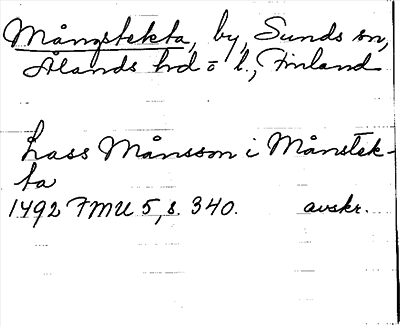 Mångstekta, by, Sunds sn,
Ålands hd o l., Finland
Lass Månsson i Månstek-
ta
1492 FMU 5, s. 340. avskr.